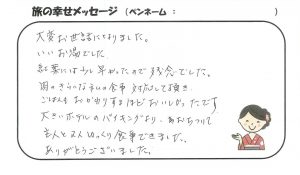 旅の幸せメッセージ (ペンネーム: )
大変お世話になりました。
いいお湯でした
紅葉には少し早かったので残念でした。
食事 対応して頂き
ごはんもおかわりするほどおいしかったです
大きいホテルのバイキングより、
主人と2人ゆっくり食事できました。
ありがとうございました。